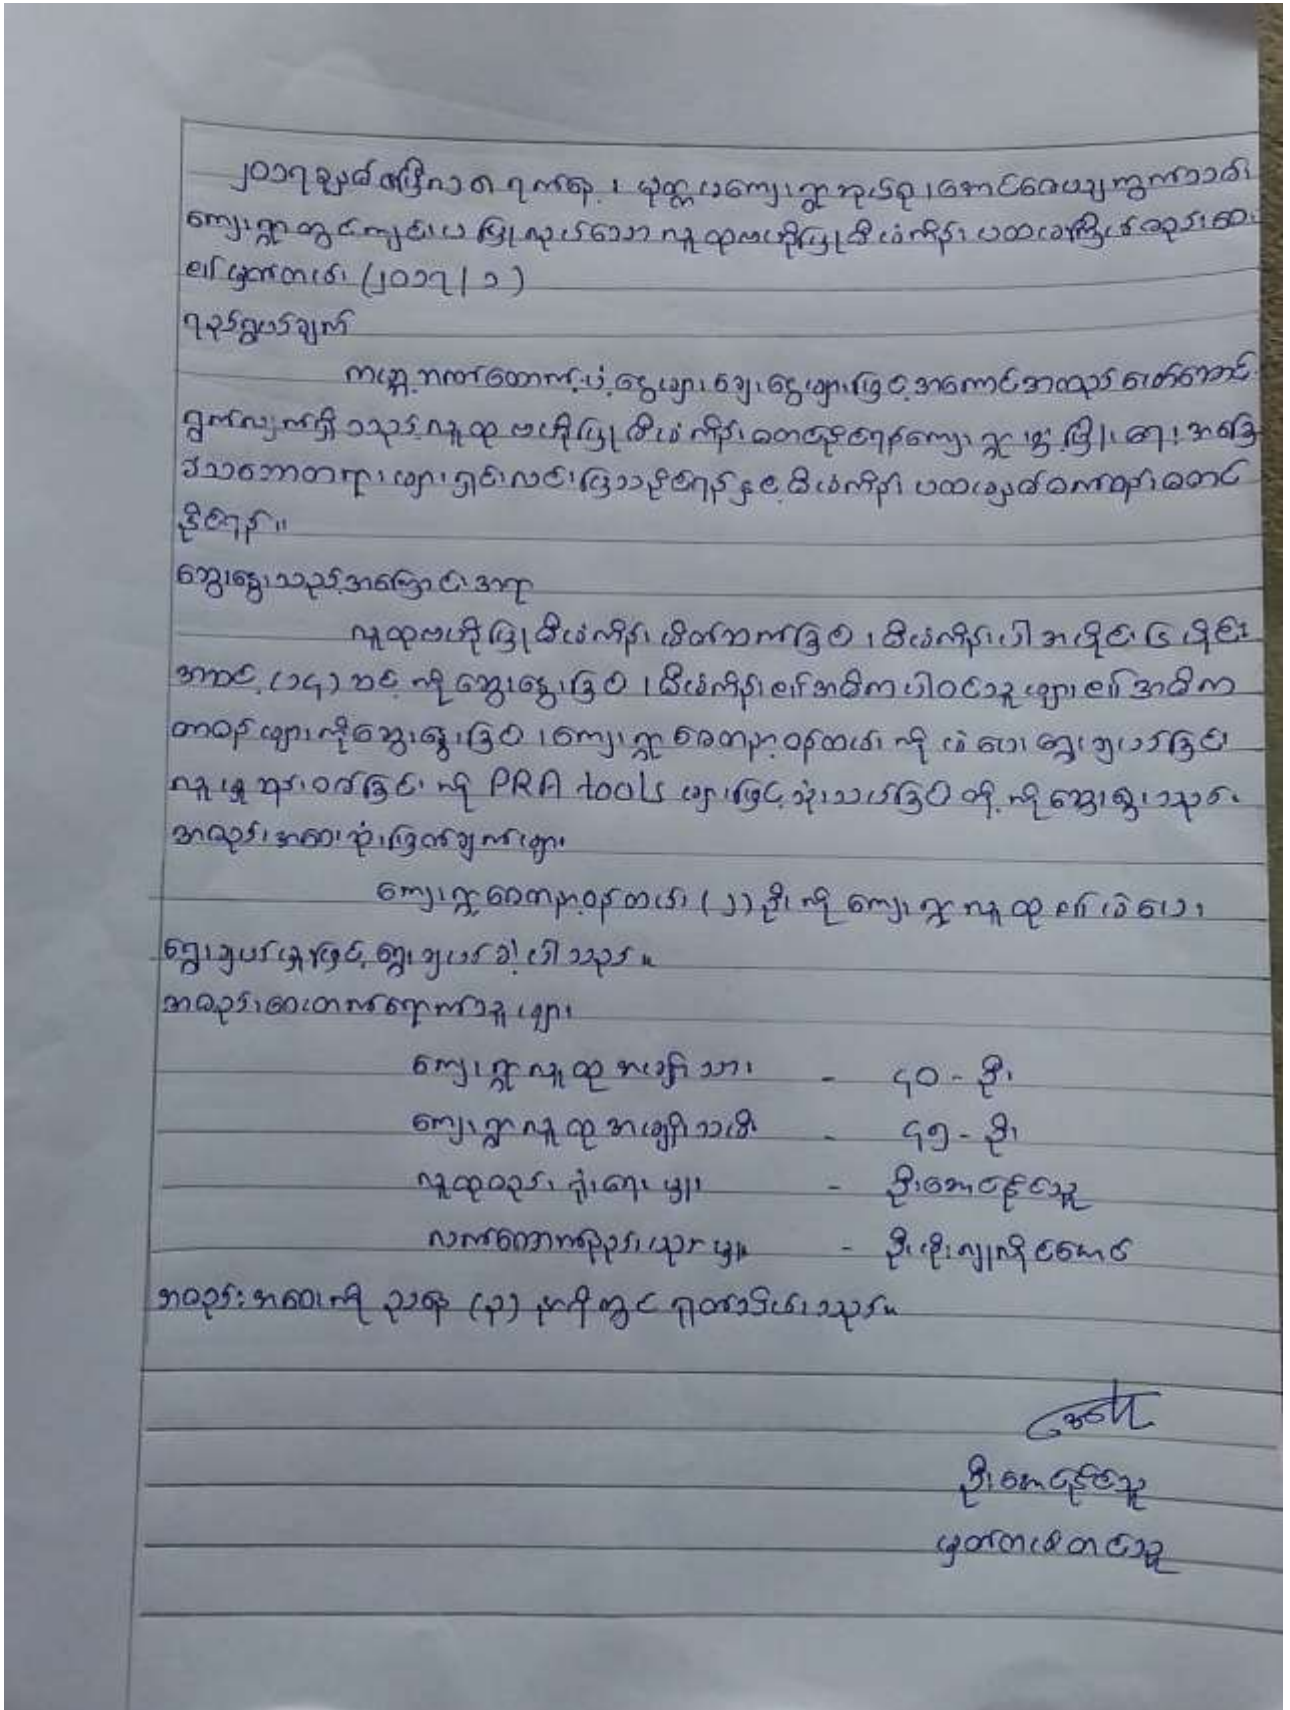 ၂၀၁၇ ခုနှစ် ဧပြီလ ၁၈ ရက်နေ့၊ မုတ္တမကျေးရွာအုပ်စု၊ အောင်ဇေယျကွက်သစ်
ကျေးရွာတွင်ကျင်းပပြုလုပ်သော လူထုဗဟိုပြုစီမံကိန်း ပထမအကြိမ်အစည်းအဝေး
၏မှတ်တမ်း (၂၀၁၇ / ၁)
ရည်ရွယ်ချက်
ကမ္ဘာ့ဘဏ်ထောက်ပံ့ငွေများ၊ ချေးငွေများဖြင့် အကောင်အထည်ဖော်ဆောင်
ရွက်လျက်ရှိသည့် လူထုဗဟိုပြုစီမံကိန်း စတင်နိုင်ရန် ကျေးရွာဖွံ့ဖြိုးရေး အခြေ
ခံသဘောတရားများ ရှင်းလင်းပြသနိုင်ရန်နှင့် စီမံကိန်း ပထမနှစ်စက်ဝန်းစတင်
နိုင်ရန်။
ဆွေးနွေးသည့်အကြောင်းအရာ
လူထုဗဟိုပြုစီမံကိန်း မိတ်ဆက်ခြင်း၊ စီမံကိန်းပါ အပိုင်း ၄ ပိုင်း
အဆင့် (၁၄) ဆင့် ကို ဆွေးနွေးခြင်း၊ စီမံကိန်း၏ အဓိက ပါဝင်သူများ၏ အဓိက
တာဝန်များကို ဆွေးနွေးခြင်း၊ ကျေးရွာစေတနာ့ဝန်ထမ်းကို မဲပေးရွေးချယ်ခြင်း
လူမှုဆန်းစစ်ခြင်းကို PRA tools များဖြင့် သုံးသပ်ခြင်းတို့ကို ဆွေးနွေးသည်။
အစည်းအဝေးဆုံးဖြတ်ချက်များ
ကျေးရွာစေတနာ့ဝန်ထမ်း (၂) ဦးကို ကျေးရွာလူထု၏ မဲပေး
ရွေးချယ်မှုဖြင့် ရွေးချယ်ခဲ့ပါသည်။
အစည်းအဝေးတက်ရောက်သူများ
ကျေးရွာလူထု အမျိုးသား - ၄၀ - ဦး
ကျေးရွာလူထု အမျိုးသမီး - ၄၅ - ဦး
လူထုစည်းရုံးရေးမှူး - ဦးအောင်နိုင်သူ
လက်ထောက်နည်းပညာမှူး - ဦးဖိုးလျှံလှိုင်အောင်
အစည်းအဝေးကို ညနေ (၃) နာရီတွင် ရုတ်သိမ်းသည်။
ဦးအောင်နိုင်သူ
မှတ်တမ်းတင်သူ